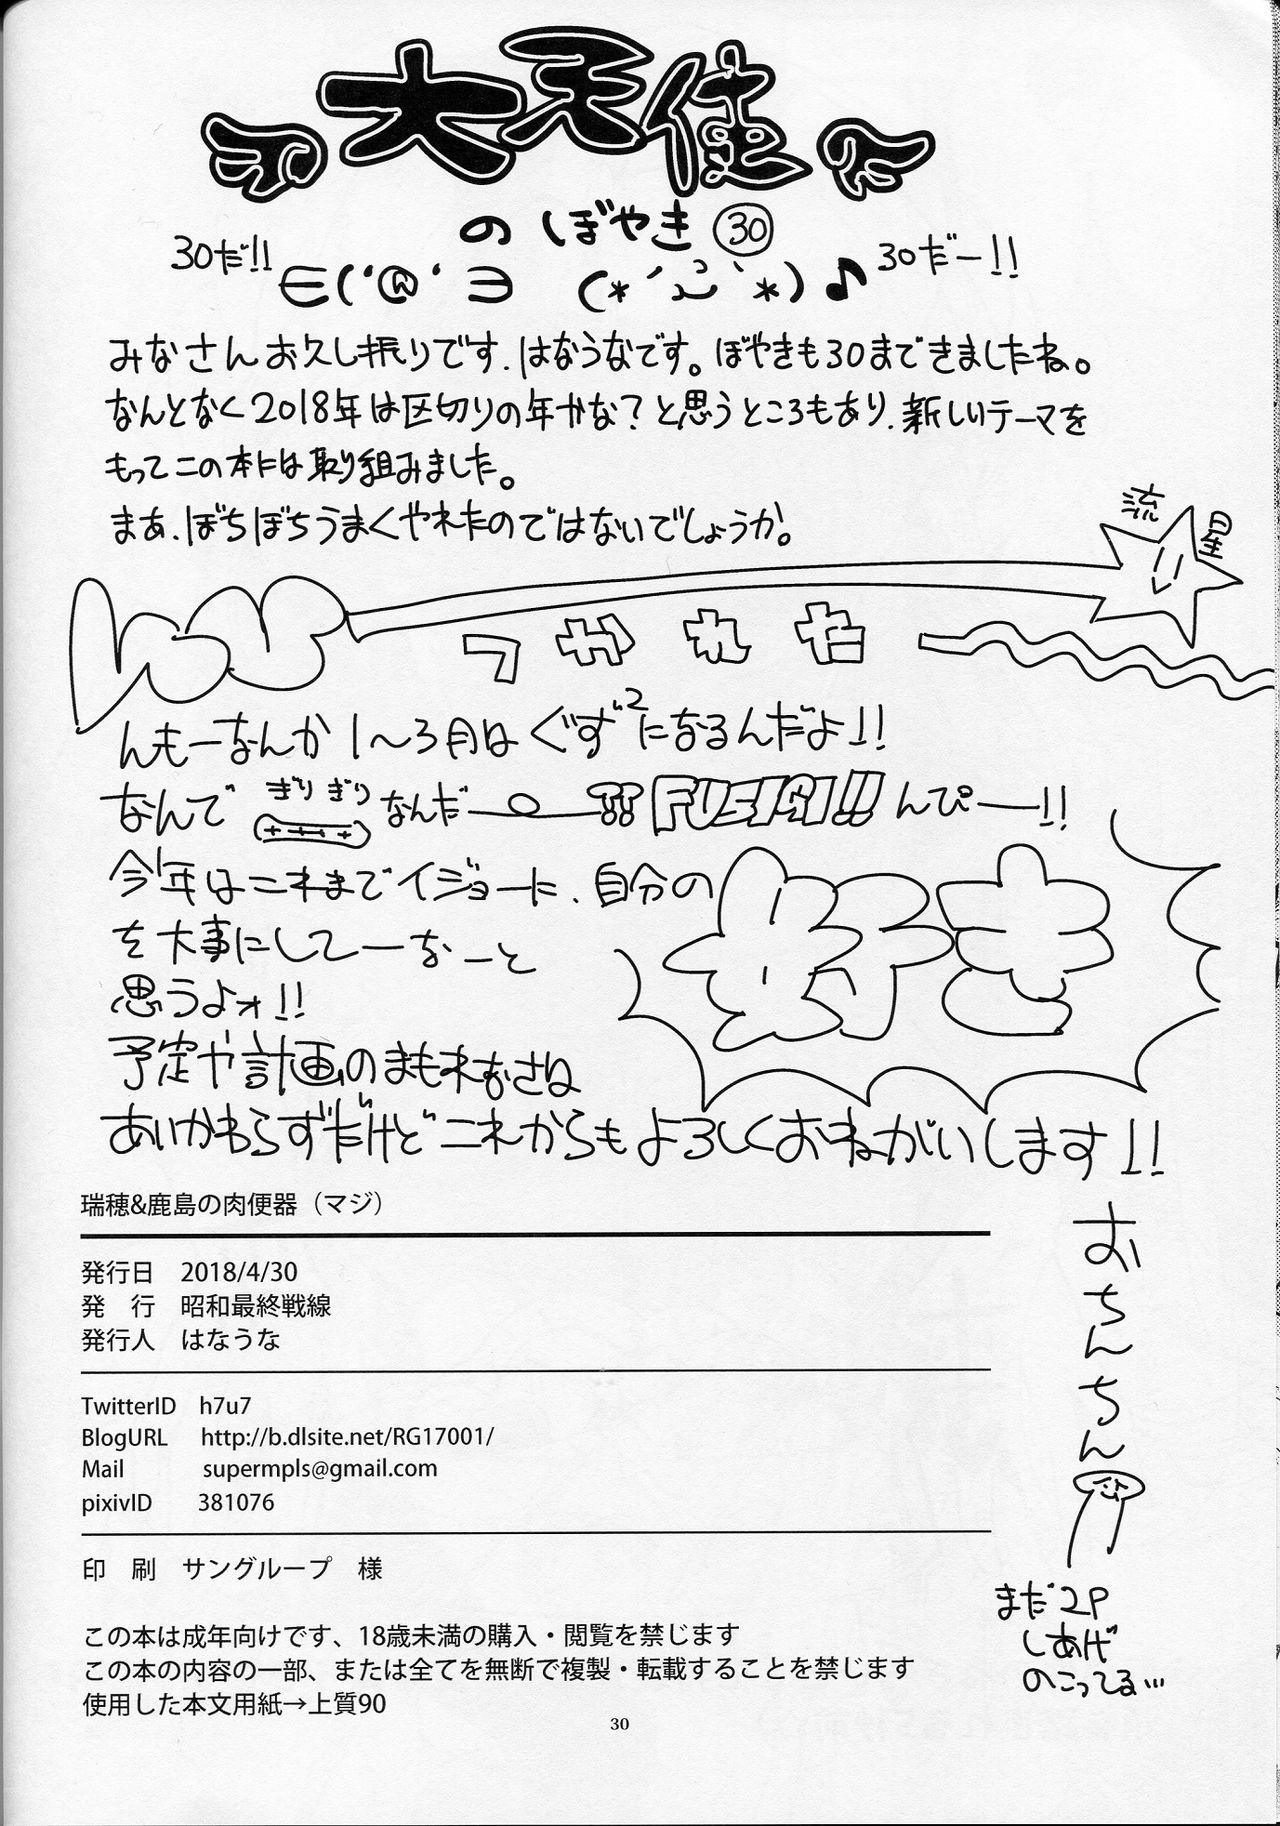 大天使
のぼやき㉚
30だ!!
30だー!!
みなさんお久し振りです.はなうなです。ぼやきも30まできましたね。
なんとなく2018年は区切りの年かな?と思うところもあり.新しいテーマを
もってこの本には取り組みました。
まぁ.ぼちぼちうまくやれたのではないでしょうか。
流
星
つかれた
んもーなんか1〜3月はぐず²になるんだよ!!
なんでぎりぎりなんだー ⁇ FUSIGI!! んぴー!!
今年はこれまでイジョーに、自分の
好き
を大事にしてーなーと
思うよォ!!
予定や計画のまもれなさね
あいかわらずだけどこれからもよろしくおねがいします!!
おちんちん
まだ2P
しあげ
のこってる…
瑞穂&鹿島の肉便器（マジ）
発行日 2018/4/30
発 行 昭和最終戦線
発行人 はなうな
TwitterID h7u7
BlogURL http://b.dlsite.net/RG17001/
Mail supermpls@gmail.com
pixivID 381076
印 刷 サングループ 様
この本は成年向けです、18歳未満の購入・閲覧を禁じます
この本の内容の一部、または全てを無断で複製・転載することを禁じます
使用した本文用紙→上質90
30